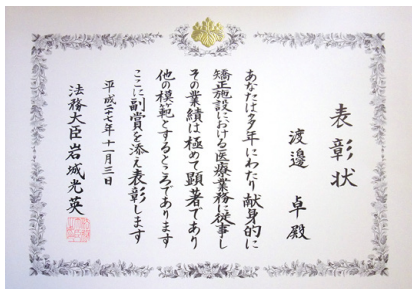 表彰状
渡邉 卓 殿
あなたは多年にわたり献身的に
矯正施設における医療業務に従事し
その業績は極めて顕著であり
他の模範とするところであります
ここに副賞を添え表彰します
平成二十七年十一月三日
法務大臣 岩城光英